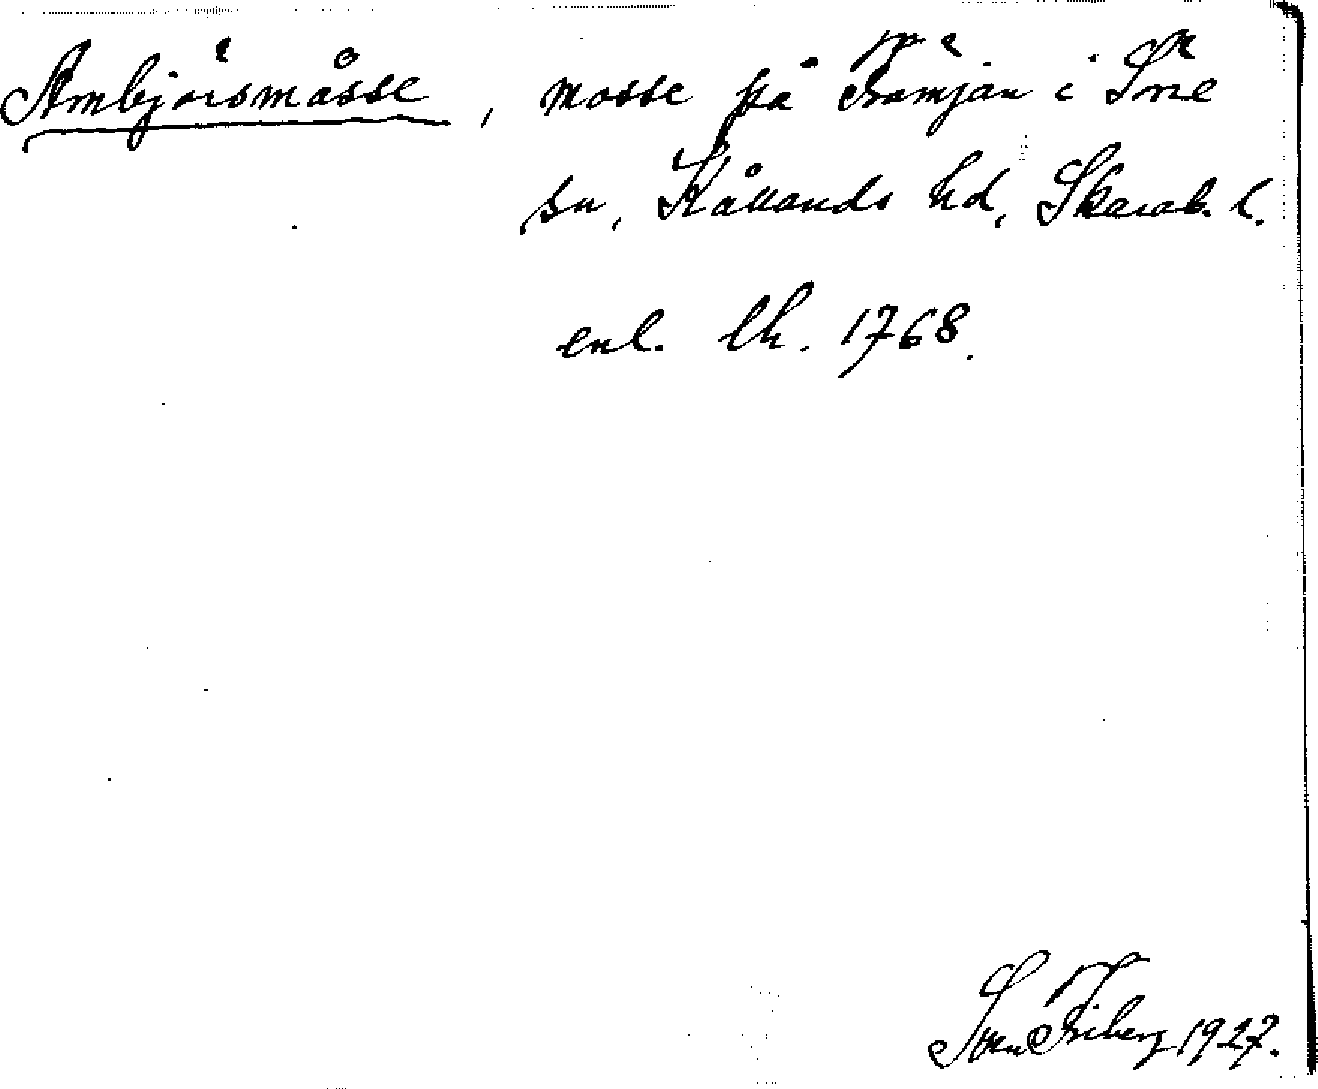 Ambjörsmåsse, mosse på Främjan i Söne
sn, Kållands hd, Skarab. l.
enl. lh. 1768.
Sven Friberg 1927.